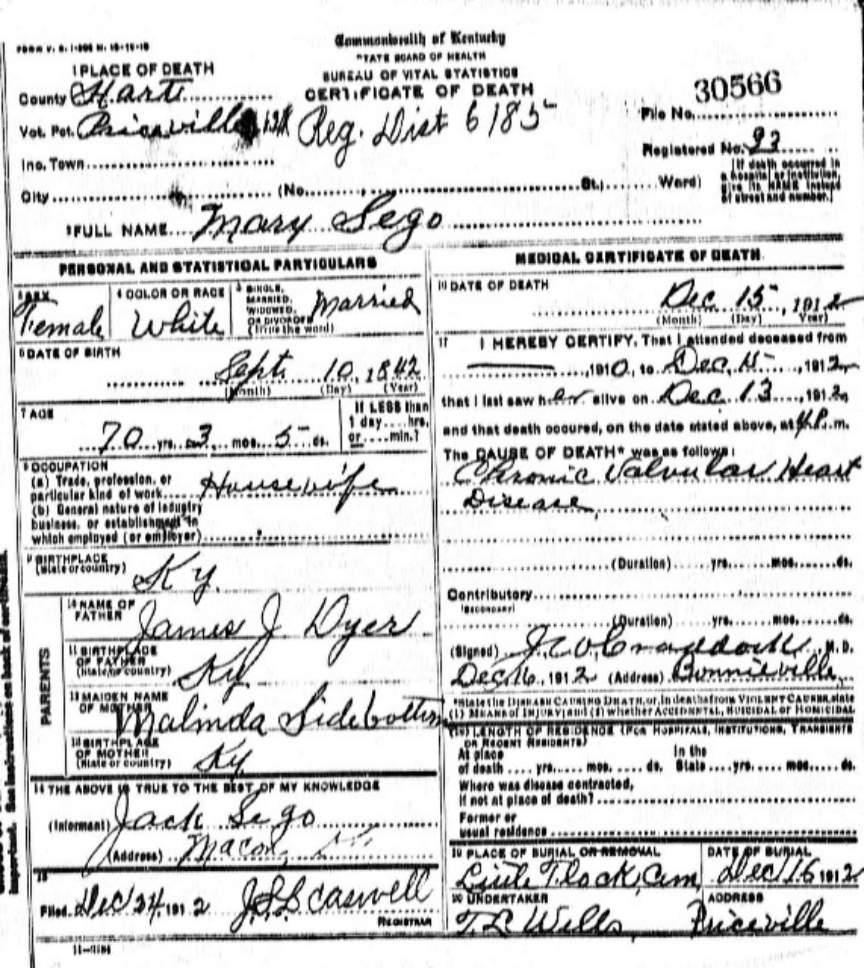 FORM V. S. 1-
Commonwealth of Kentucky
STATE BOARD OF HEALTH
BUREAU OF VITAL STATISTICS
CERTIFICATE OF DEATH
1 PLACE OF DEATH
County Hart
Vot. Pct. Priceville Reg. Dist 6185
File No. 30566
Registered No. 93
Inc. Town
City (No. St.) Ward)
[If death occurred in a hospital or institution, give its NAME instead of street and number.]
2 FULL NAME Mary Sego
PERSONAL AND STATISTICAL PARTICULARS
3 SEX Female
4 COLOR OR RACE White
5 SINGLE, MARRIED, WIDOWED, OR DIVORCED (Write the word) Married
6 DATE OF BIRTH
Sept. 10, 1842
(Month) (Day) (Year)
7 AGE
70 yrs. 3 mos. 5 ds.
If LESS than 1 day....hrs. or....min.?
8 OCCUPATION
(a) Trade, profession, or
particular kind of work Housewife
(b) General nature of industry
business, or establishment in
which employed (or employer)
9 BIRTHPLACE
(State or country) Ky.
PARENTS
10 NAME OF FATHER James J Dyer
11 BIRTHPLACE OF FATHER (State or country) Ky
12 MAIDEN NAME OF MOTHER Malinda Sidebottom
13 BIRTHPLACE OF MOTHER (State or country) Ky
14 THE ABOVE IS TRUE TO THE BEST OF MY KNOWLEDGE
(Informant) Jack Sego
(Address) Macon,
15
Filed Dec 24, 1912
REGISTRAR
MEDICAL CERTIFICATE OF DEATH
16 DATE OF DEATH
Dec 15, 1912
(Month) (Day) (Year)
17 I HEREBY CERTIFY, That I attended deceased from
, 1910, to Dec, 15, 1912
that I last saw her alive on Dec. 13, 1912,
and that death occured, on the date stated above, at 4 P. m.
The CAUSE OF DEATH* was as follows:
Chronic Valvular Heart
Disease
(Duration) yrs. mos. ds.
Contributory
(Secondary)
(Duration) yrs. mos. ds.
(Signed) Craddock M. D.
Dec, 16, 1912 (Address) Bonnieville
*State the DISEASE CAUSING DEATH, or, in deaths from VIOLENT CAUSES, state
(1) MEANS OF INJURY; and (2) whether ACCIDENTAL, SUICIDAL or HOMICIDAL
18 LENGTH OF RESIDENCE (FOR HOSPITALS, INSTITUTIONS, TRANSIENTS
OR RECENT RESIDENTS)
At place of death yrs. mos. ds. In the State yrs. mos. ds.
Where was disease contracted,
if not at place of death?
Former or
usual residence
19 PLACE OF BURIAL OR REMOVAL
DATE OF BURIAL
Cem Dec 16 1912
20 UNDERTAKER
ADDRESS
T. L Wells Priceville